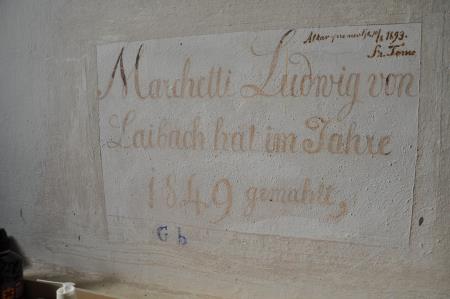 1893.
Fr. Tomc
Marchetti Ludwig von
Laibach hat im Jahre
1849 gemahlt,
G b